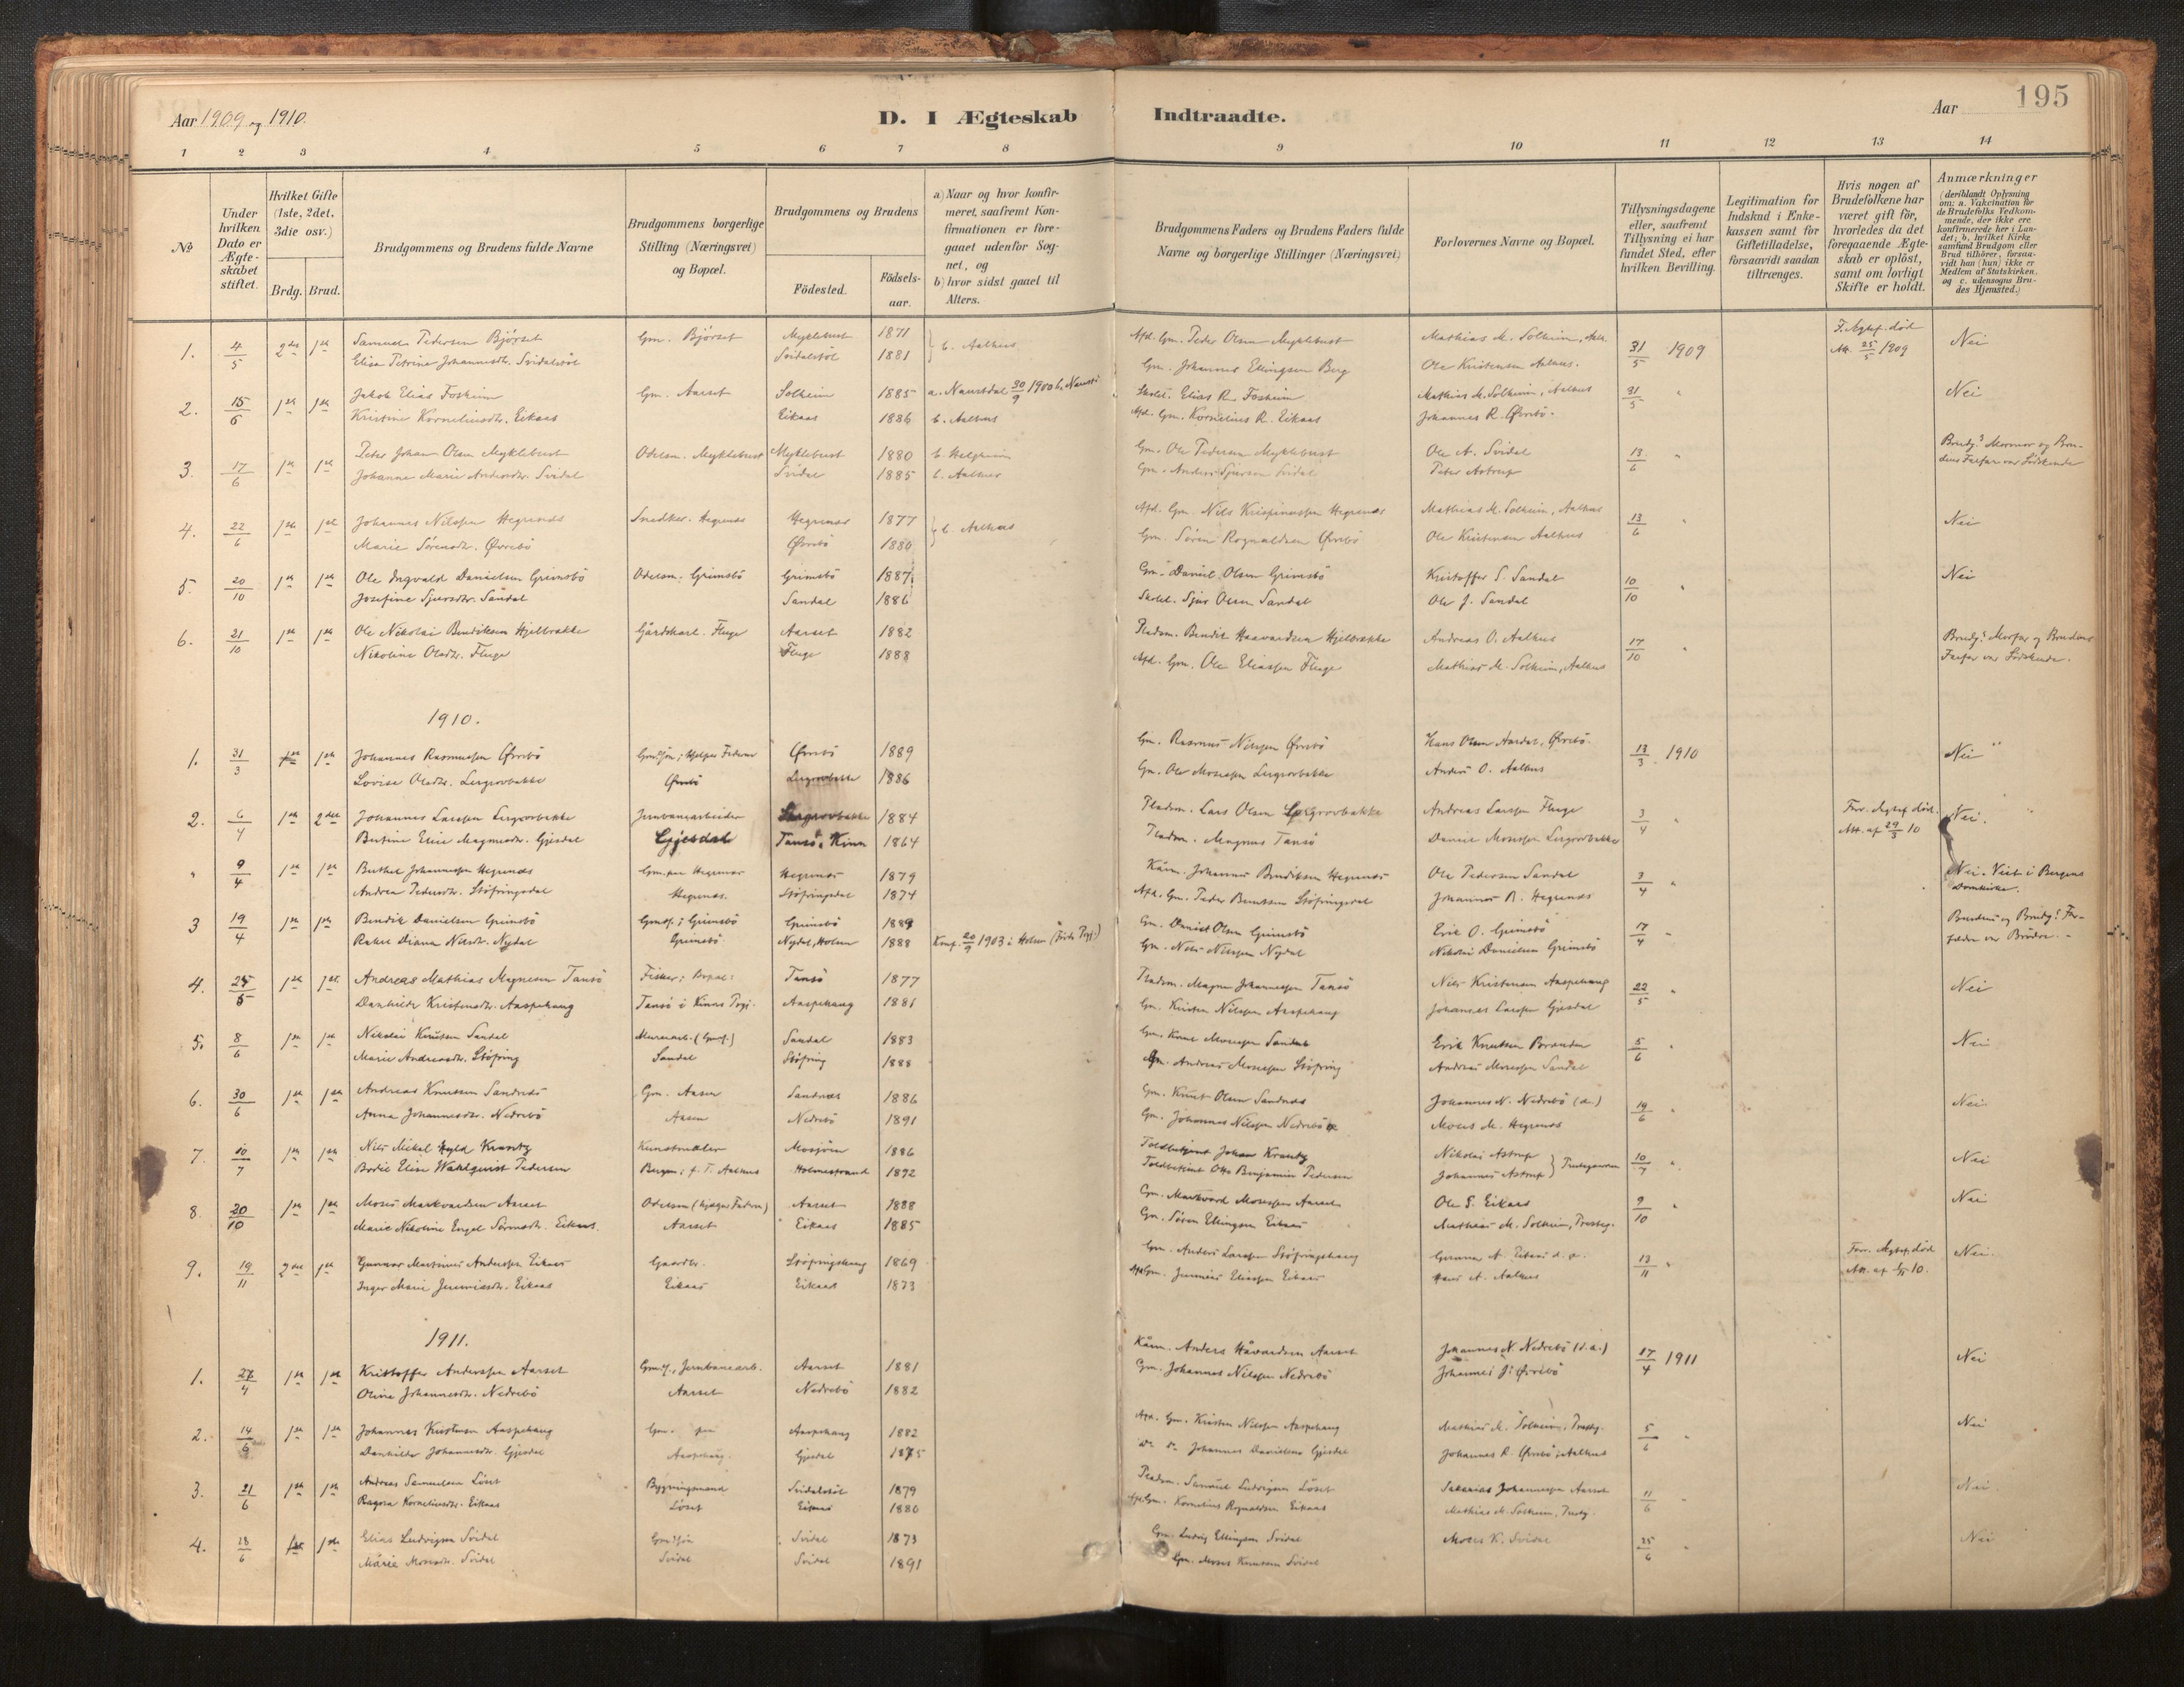 Aar 1909 og 1910.
D. I Ægteskab Indtraadte.
Aar 195
1 2 3 4 5 6 7 8 9 10 11 12 13 14
№
Under hvilken Dato er Ægteskabet stiftet.
Hvilket Gifte (1ste, 2det, 3die osv.)
Brdg. Brud.
Brudgommens og Brudens fulde Navne
Brudgommens borgerlige Stilling (Næringsvei) og Bopæl.
Brudgommens og Brudens
Födested. Födselsaar.
a) Naar og hvor konfirmeret, saafremt Konfirmationen er foregaaet udenfor Sognet, og
b) hvor sidst gaaet til Alters.
Brudgommens Faders og Brudens Faders fulde Navne og borgerlige Stillinger (Næringsvei)
Forlovernes Navne og Bopæl.
Tillysningsdagene eller, saafremt Tillysning ei har fundet Sted, efter hvilken Bevilling.
Legitimation for Indskud i Enkekassen samt for Giftetilladelse, forsaavidt saadan tiltrænges.
Hvis nogen af Brudefolkene har været gift för, hvorledes da det foregaaende Ægteskab er oplöst, samt om lovligt Skifte er holdt.
Anmærkninger (deriblandt Oplysning om: a. Vakcination for de Brudefolks Vedkommende, der ikke ere konfirmerede her i Landet; b. hvilket Kirkesamfund Brudgom eller Brud tilhörer, forsaavidt han (hun) ikke er Medlem af Statskirken, og c. udensogns Brudes Hjemsted.)
1. 4/5 2det 1ste Samuel Pedersen Bjørset Gm. Bjørset Myklebust 1871 b. Aalhus Afd. Gm. Peder Olsen Myklebust Mathias M. Solheim, Aalh. 31/5 1909 F. Ægtef. död Nei
Elise Petrine Johannesdtr. Svidalsstöl Svidalstöl 1881 Gm. Johannes Ellingsen Berg Ole Kristensen Aalhus. Att. 25/5 1909
2. 15/6 1ste 1ste Jakob Elias Fosheim Gm. Aarset Solheim 1885 a. Naustdal 30/9 1900 Skolel. Elias R. Fosheim Mathias M. Solheim, Aalhus 31/5 " Nei
Kristine Korneliusdtr. Eikaas Eikaas 1886 b. Aalhus Afd. Gm. Kornelius R. Eikaas Johannes R. Øvrebö.
3. 17/6 1ste 1ste Peder Johan Olsen Myklebust Odelsm. Myklebust Myklebust 1880 b. Helgheim Gm. Ole Pedersen Myklebust Ole A. Svidal 13/6 " Brudg.s Mormor og Brudens Farfar var Södskende
Johanne Marie Andersdtr. Svidal Svidal 1885 b. Aalhus Gm. Anders Sjursen Svidal Peter Astrup
4. 22/6 1ste 1ste Johannes Nilssen Hegrenæs Snedker. Hegrenæs Hegrenæs 1877 b. Aalhus Afd. Gm. Nils Krispinussen Hegrenæs Mathias M. Solheim, Aalhus 13/6 " Nei
Marie Sørensdtr. Øvrebö Øvrebö 1880 Gm. Søren Rognaldsen Øvrebö Ole Kristensen Aalhus
5. 20/10 1ste 1ste Ole Ingvald Danielsen Grimsbö Odelsm. Grimsbö Grimsbö 1887 Gm. Daniel Olsen Grimsbö Kristoffer S. Sandal 10/10 " Nei
Josefine Sjursdtr. Sandal Sandal 1886 Skolel. Sjur Olsen Sandal Ole J. Sandal
6. 21/10 1ste 1ste Ole Nikolai Bendiksen Hjelbrække Gårdskarl. Fluge Aarset 1882 Pladsm. Bendik Haavardsen Hjelbrække Andreas O. Aalhus 17/10 " Brudg.s Morfar og Brudens Farfar var Södskende.
Nikoline Olsdtr. Fluge Fluge 1888 Afd. Gm. Ole Eliassen Fluge Mathias M. Solheim, Aalhus
1910.
1. 31/3 1ste 1ste Johannes Rasmussen Øvrebö Gmdsön; hjelper Faderen Øvrebö 1889 Gm. Rasmus Nilssen Øvrebö Hans Olsen Aardal, Øvrebö. 13/3 1910 Nei
Lovise Olsdtr. Lergrovbakke Øvrebö Lergrovbakke 1886 Gm. Ole Mosessen Lergrovbakke Anders O. Aalhus
2. 6/4 1ste 2det Johannes Larssen Lergrovbakke Jernbanearbeider Lergrovbakke 1884 Pladsm. Lars Olsen Lergrovbakke Andreas Larssen Fluge 3/4 " Forr. Ægtef. död. Nei.
Bertine Elise Magnusdtr. Gjesdal Gjesdal Tansö, Kinn 1864 Pladsm. Magnus Tansö Daniel Mosessen Lergrovbakke Att. af 29/3 10
" 9/4 1ste 1ste Berthel Johannessen Hegrenæs Gm. paa Hegrenæs Hegrenæs 1879 Kårm. Johannes Bendiksen Hegrenæs Ole Pedersen Sandal 3/4 " Nei. Viet i Bergens Domkirke.
Andrea Pedersdtr. Stöfringsdal Hegrenæs. Stöfringsdal 1874 Afd. Gm. Peder Bentssen Stöfringsdal Johannes N. Hegrenæs
3 19/4 1ste 1ste Bendik Danielsen Grimsbö Gmds.; Grimsbö Grimsbö 1889 Gm. Daniel Olsen Grimsbö Erik O. Grimsbö 17/4 " Brudens og Brudg.s Farfædre var Brödre.
Rakel Diana Nilsdtr. Nydal Grimsbö. Nydal, Holsen 1888 Konf. 20/9 1903 i Holsen (Förde Prgj.) Gm. Nils Nilssen Nydal Nikolai Danielsen Grimsbö
4. 25/5 1ste 1ste Andreas Mathias Magnesen Tansö Fisker; bopæl: Tansö 1877 Pladsm. Magne Johannessen Tansö Nils Kristensen Aaspehaug 22/5 " Nei
Danhilde Kristensdtr. Aaspehaug Tansö i Kinns Prgj. Aaspehaug 1881 Gm. Kristen Nilssen Aaspehaug Johannes Larssen Gjesdal
5. 8/6 1ste 1ste Nikolai Knutsen Sandal Murerarb. (Gmds.) Sandal 1883 Gm. Knut Mosessen Sandal Erik Knutsen Brandsø 5/6 " Nei
Marie Andreasdtr. Stöfring Sandal Stöfring 1888 Gm. Andreas Mosessen Stöfring Andreas Mosessen Sandal
6. 30/6 1ste 1ste Andreas Knutsen Sandnæs Gm. Aasen Sandnæs 1886 Gm. Knut Olsen Sandnæs Johannes N. Nedrebö (d.a.) 19/6 " Nei
Anna Johannesdtr. Nedrebö Aasen Nedrebö 1891 Gm. Johannes Nilssen Nedrebö Moses M. Hegrenæs
7. 10/7 1ste 1ste Nils Mickal Hyld Krantz Kunstmaler Mosjöen 1886 Toldbetjent Johan Krantz Nikolai Astrup 10/7 " Nei
Bodil Elise Wahlquist Pedersen Bergen; f. T. Aalhus Holmestrand 1892 Toldbetjent Otto Benjamin Pedersen Johannes Astrup
8. 20/10 1ste 1ste Moses Markvardsen Aarset Odelsm. (hjælper Faderen) Aarset 1888 Gm. Markvard Mosessen Aarset Ole S. Eikaas 9/10 " Nei
Marie Nikoline Engel Sörensdtr. Eikaas. Aarset Eikaas 1885 Gm. Sören Ellingsen Eikaas Mathias M. Solheim, Presteg.
9. 19/11 2det 1ste Gunnar Martinus Anderssen Eikaas Gaardbr. Stöfringshaug 1869 Gm. Anders Larssen Stöfringshaug Gunnar A. Eikaas d. a. 13/11 " Forr. Ægtef. död Nei.
Inger Marie Jeremiasdtr. Eikaas Eikaas Eikaas 1873 Afd. Gm. Jeremias Eliassen Eikaas Hans A. Aalhus Att. af 10.
1911.
1. 27/4 1ste 1ste Kristoffer Anderssen Aarset Gmds., Jernbanearb. Aarset 1881 Kårm. Anders Håvardsen Aarset Johannes N. Nedrebö (d.a.) 17/4 1911 Nei
Oline Johannesdtr. Nedrebö Aarset Nedrebö 1882 Gm. Johannes Nilssen Nedrebö Johannes J. Øvrebö
2. 14/6 1ste 1ste Johannes Kristensen Aaspehaug Gm. paa Aaspehaug 1882 Afd. Gm. Kristen Nilssen Aaspehaug Mathias M. Solheim, Presteg. 5/6 " Nei
Danhilde Johannesdtr. Gjesdal Aaspehaug. Gjesdal 1875 do do Johannes Danielsen Gjesdal Johannes R. Øvrebö, Aalhus
3. 21/6 1ste 1ste Andreas Samuelsen Löset Bygningsmand Svidalstöl 1879 Pladsm. Samuel Ludvigsen Löset Sakarias Johannessen Aarset 11/6 " Nei
Ragna Korneliusdtr. Eikaas Löset Eikaas 1880 Afd. Gm. Kornelius Rognaldsen Eikaas Mathias M. Solheim, Presteg.
4. 28/6 1ste 1ste Elias Ludvigsen Svidal Gmdsön Svidal 1873 Gm. Ludvig Ellingsen Svidal Moses K. Svidal 25/6 " Nei
Marie Mosesdtr. Svidal Svidal Svidal 1891 Gm. Moses Knutsen Svidal